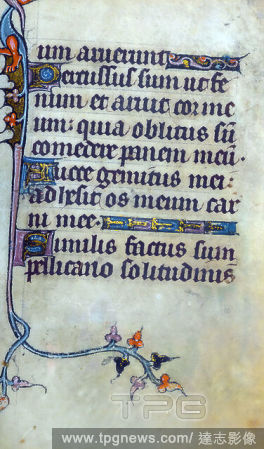 um aruerunt.
Percussus sum ut fe
num et aruit cor me
um: quia oblitus sū
comedere panem meū.
A uoce gemitus mei:
adhesit os meum car
ni mee.
Similis factus sum
pellicano solitudinis
TPG
www.tpgnews.com/ 達志影像